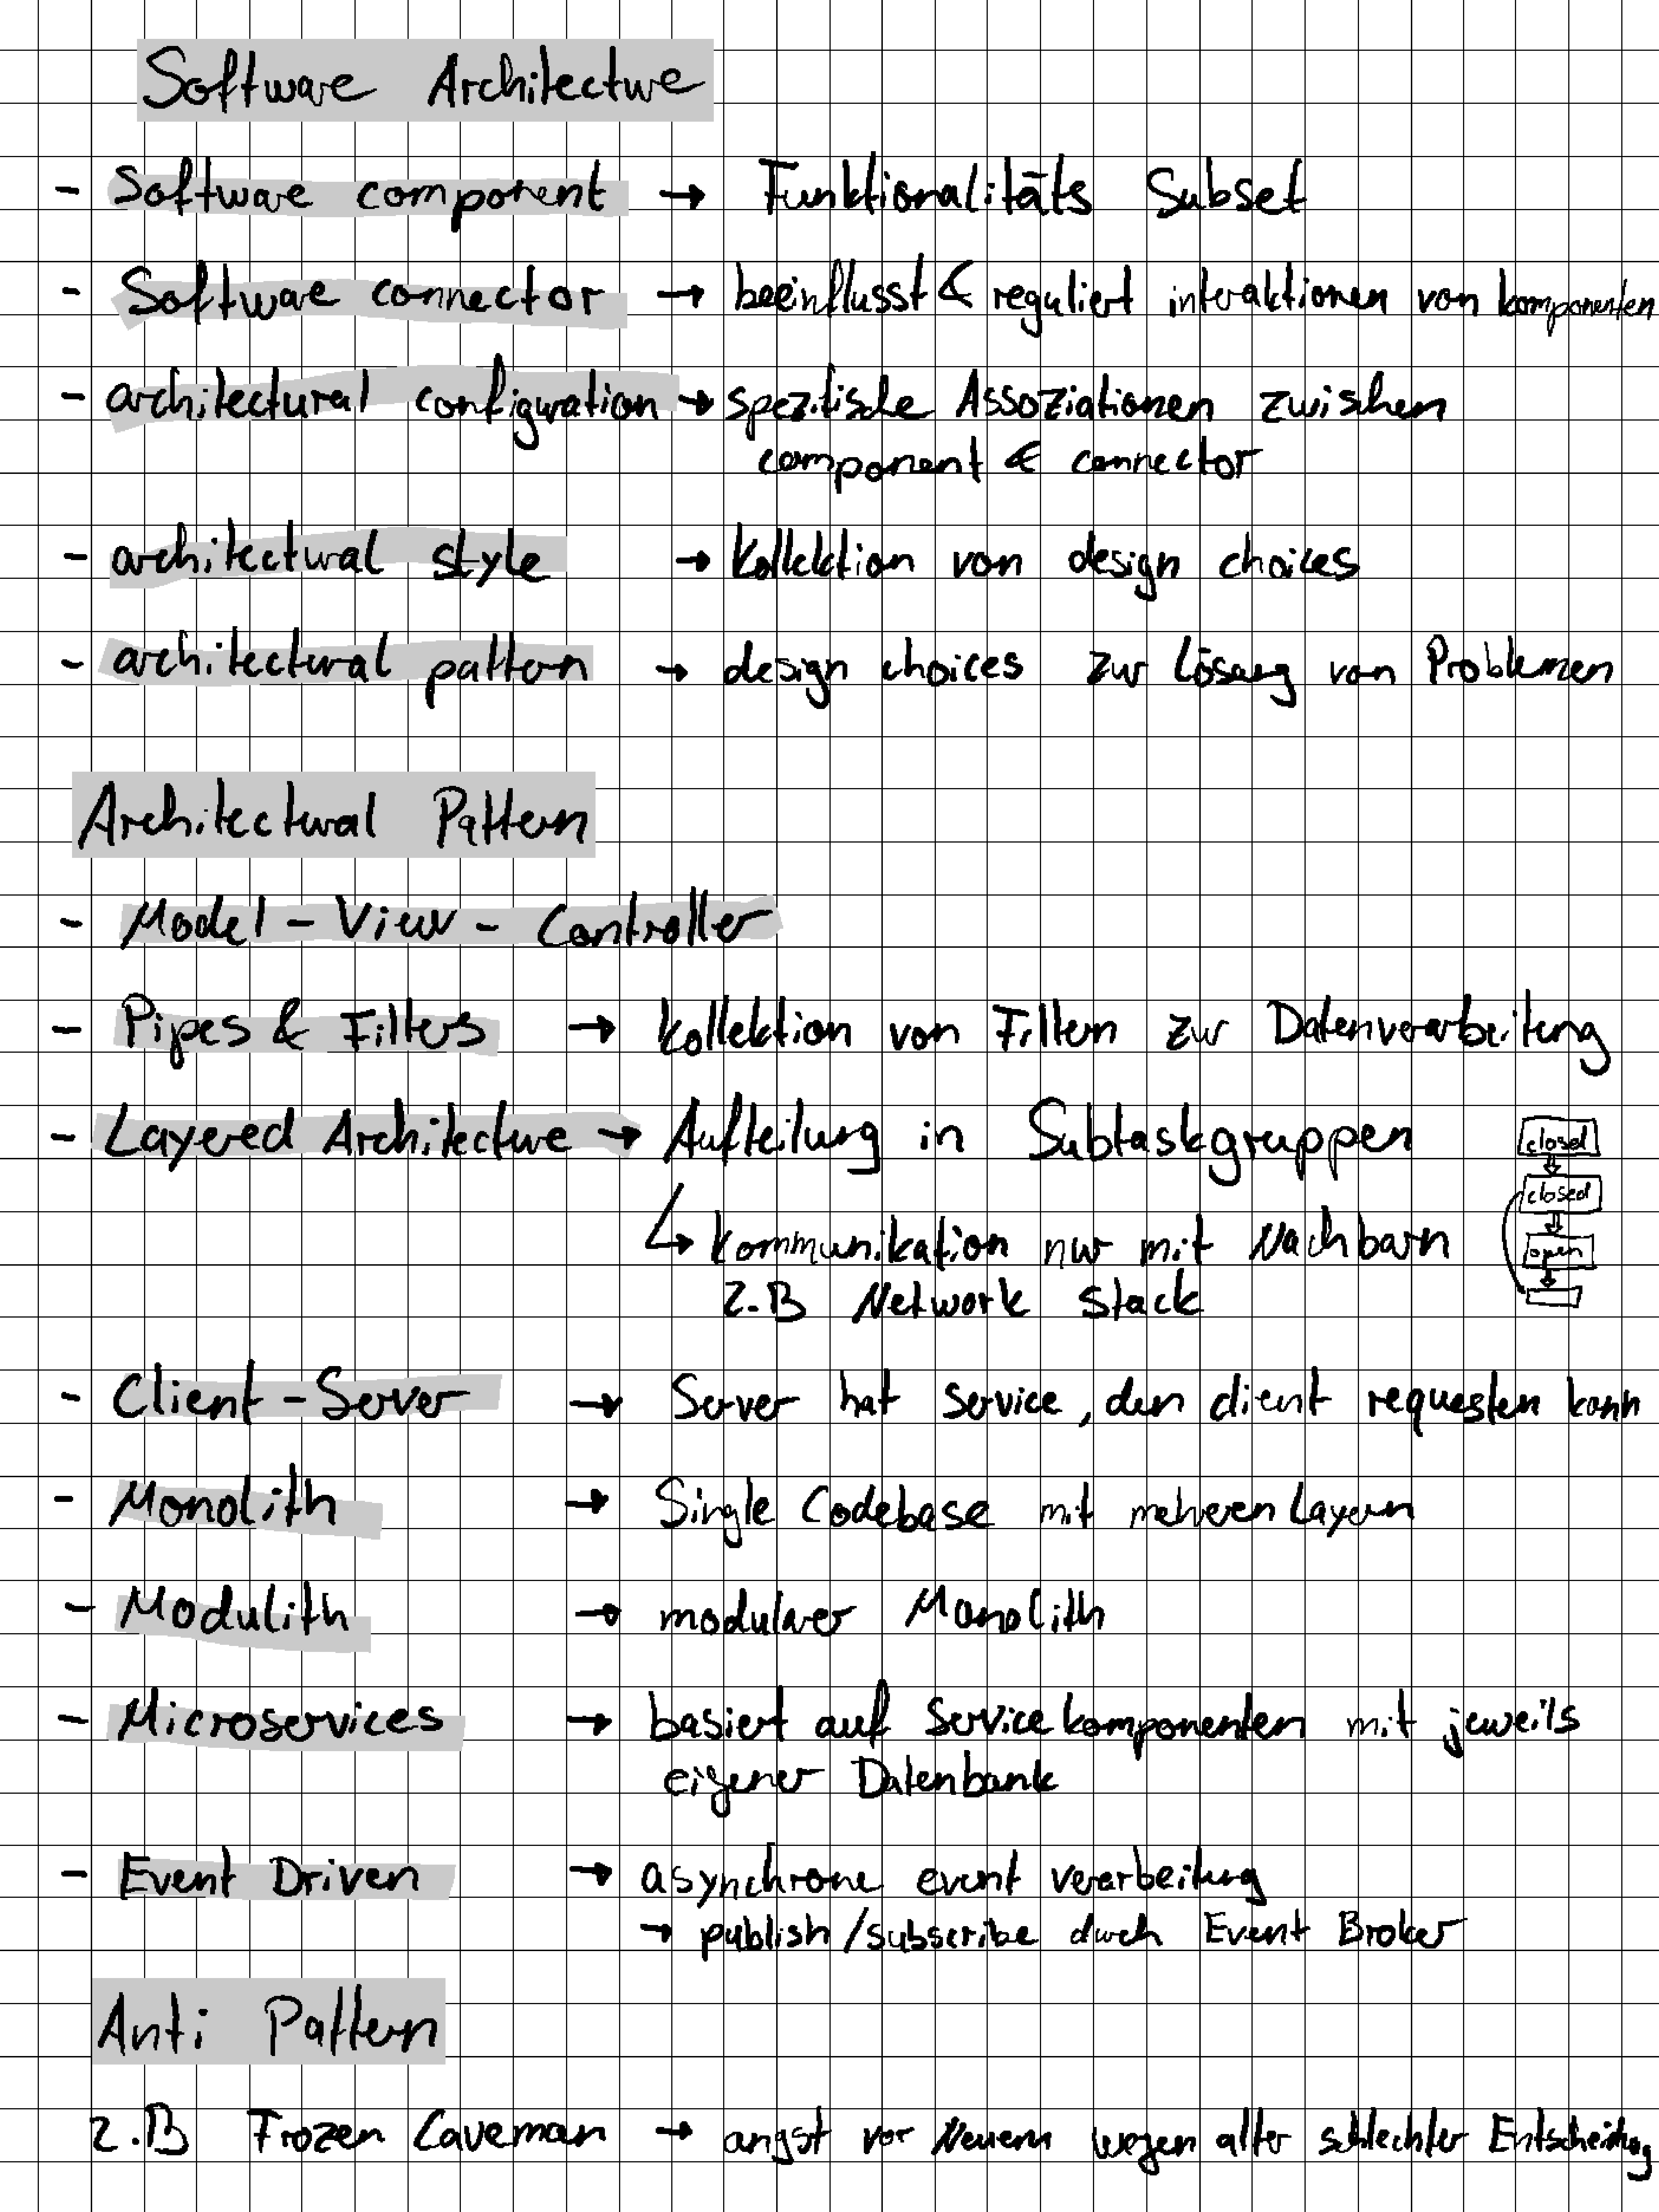 Software Architecture
- Software component → Funktionalitäts Subset
- Software connector → beeinflusst & reguliert interaktionen von komponenten
- architectural configuration → spezifische Assoziationen zwischen
component & connector
- architectural style → Kollektion von design choices
- architectural pattern → design choices zur Lösung von Problemen
Architectural Pattern
- Model - View - Controller
- Pipes & Filters → Kollektion von Filtern zur Datenverarbeitung
- Layered Architecture → Aufteilung in Subtaskgruppen
closed
closed
↳ Kommunikation nur mit Nachbarn
open
z.B Network stack
- Client - Server → Server hat Service, den client requesten kann
- Monolith → Single Codebase mit mehreren Layern
- Modulith → modularer Monolith
- Microservices → basiert auf Servicekomponenten mit jeweils
eigener Datenbank
- Event Driven → asynchrone event verarbeitung
→ publish/subscribe durch Event Broker
Anti Pattern
z.B Frozen Caveman → angst vor Neuem wegen alter schlechter Entscheidung